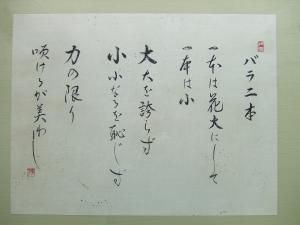 バラ二本
一本は花大にして
一本は小
大大を誇らず
小小なるを恥じず
力の限り
咲けるが美わし